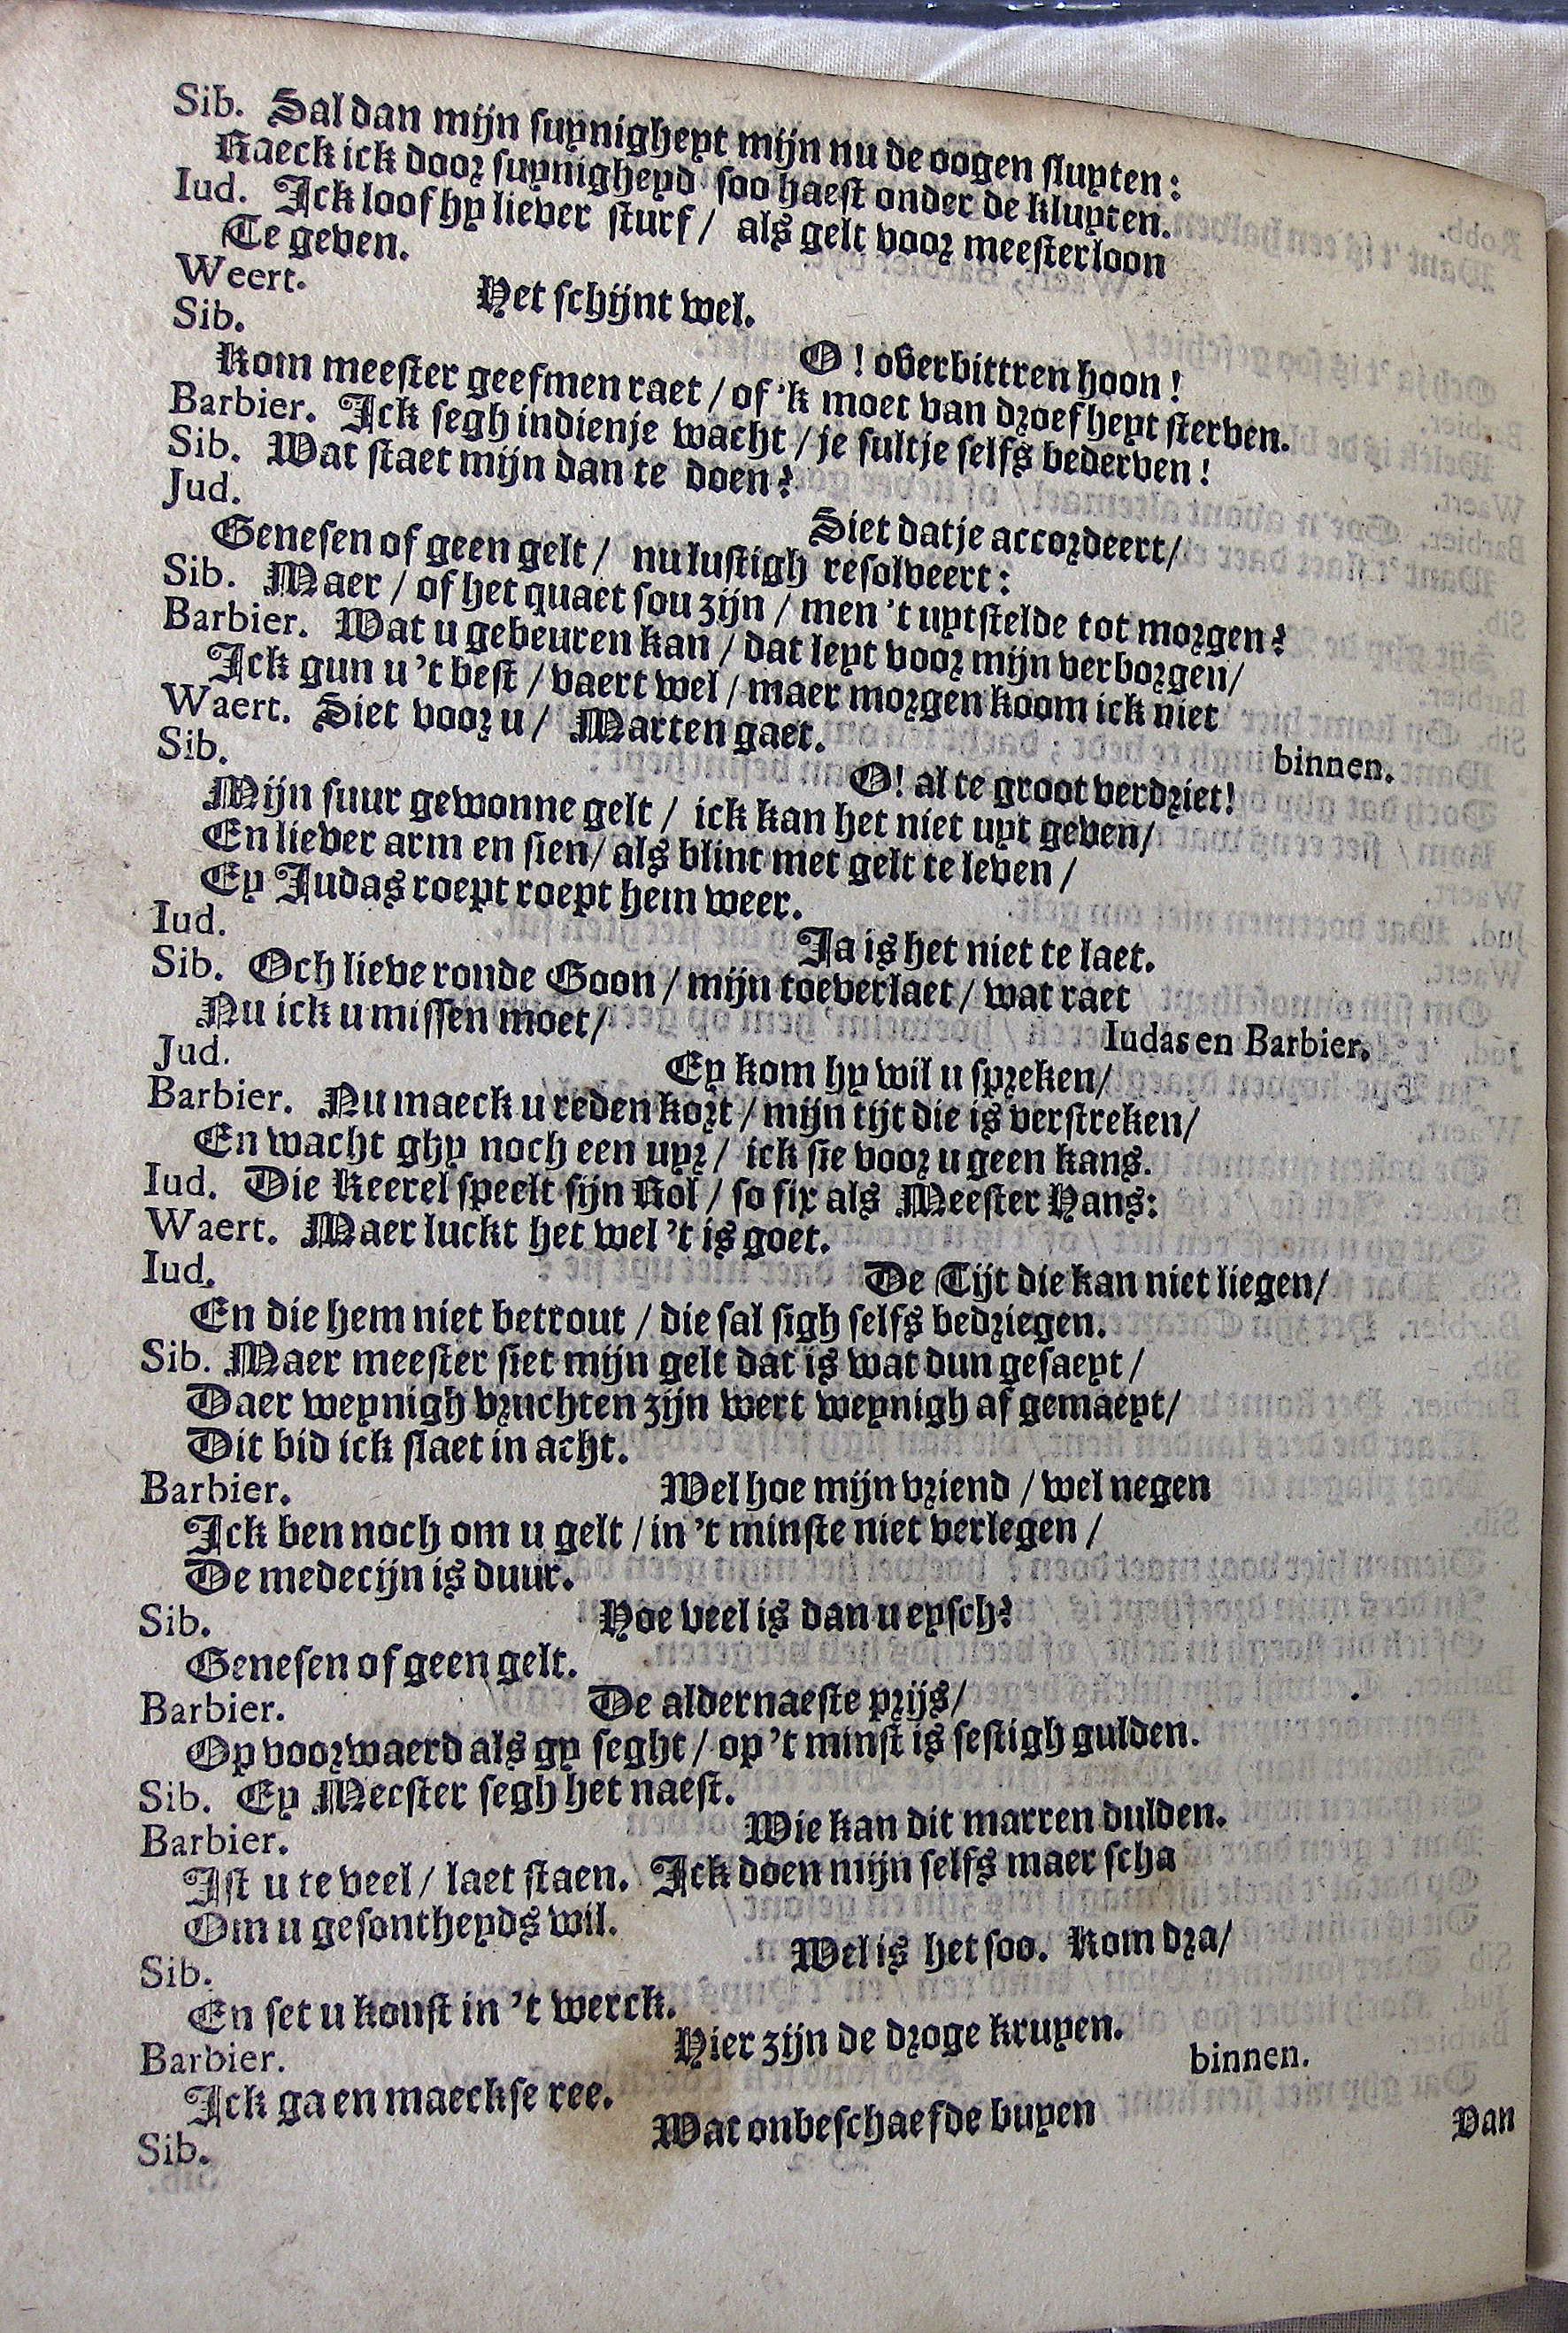 Sib. Sal dan mijn suynigheyt mijn nu de oogen sluyten:
Raeck ick door suynigheyd soo haest onder de kluyten.
Iud. Ick loof hy liever sturf / als gelt voor meesterloon
Te geven.
Weert. Het schijnt wel.
Sib. O! overbittren hoon!
Kom meester geefmen raet / of 'k moet van droefheyt sterven.
Barbier. Ick segh indienje wacht / je sultje selfs bederven!
Sib. Wat staet mijn dan te doen?
Jud. Siet datje accordeert /
Genesen of geen gelt / nu lustigh resolveert:
Sib. Maer / of het quaet sou zijn / men 't uytstelde tot morgen?
Barbier. Wat u gebeuren kan / dat leyt voor mijn verborgen /
Ick gun u 't best / vaert wel / maer morgen koom ick niet
binnen.
Waert. Siet voor u / Marten gaet.
Sib. O! al te groot verdriet!
Mijn suur gewonne gelt / ick kan het niet uyt geven /
En liever arm en sien / als blint met gelt te leven /
Ey Judas roept roept hem weer.
Iud. Ja is het niet te laet.
Sib. Och lieve ronde Goon / mijn toeverlaet / wat raet
Nu ick u missen moet /
Iudas en Barbier.
Jud. Ey kom hy wil u spreken /
Barbier. Nu maeck u reden kort / mijn tijt die is verstreken /
En wacht ghy noch een uyr / ick sie voor u geen kans.
Iud. Die Keerel speelt sijn Rol / so fix als Meester Hans:
Waert. Maer luckt het wel 't is goet.
Iud. De Tijt die kan niet liegen /
En die hem niet betrout / die sal sigh selfs bedriegen.
Sib. Maer meester siet mijn gelt dat is wat dun gesaeyt /
Daer weynigh vruchten zijn wert weynigh af gemaeyt /
Dit bid ick slaet in acht.
Barbier. Wel hoe mijn vriend / wel negen
Ick ben noch om u gelt / in 't minste niet verlegen /
De medecijn is duur.
Sib. Hoe veel is dan u eysch?
Genesen of geen gelt.
Barbier. De aldernaeste prijs /
Op voorwaerd als gy seght / op 't minst is sestigh gulden.
Sib. Ey Meester segh het naest.
Barbier. Wie kan dit marren dulden.
Ist u te veel / laet staen. Ick doen mijn selfs maer scha
Om u gesontheyds wil.
Sib. Wel is het soo. Kom dra /
En set u konst in 't werck.
Barbier. Hier zijn de droge kruyen.
Ick ga en maeckse ree.
binnen.
Sib. Wat onbeschaefde buyen
Van